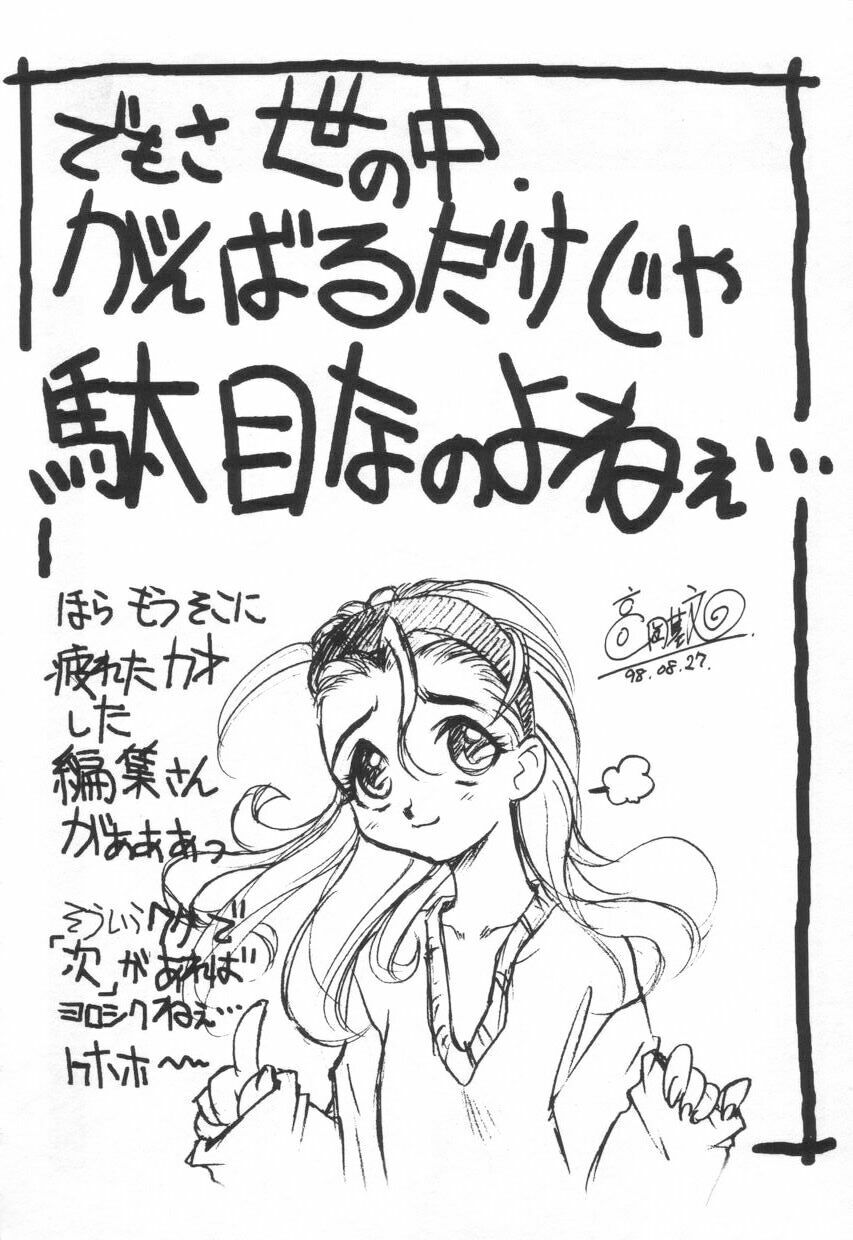 でもさ 世の中.
がんばるだけじゃ
駄目なのよねぇ…
ほら もうそこに
疲れたカオ
した
編集さん
がぁぁぁっ
そういうワケで
「次」があれば
ヨロシクねぇ…
トホホ〜
98.08.27.